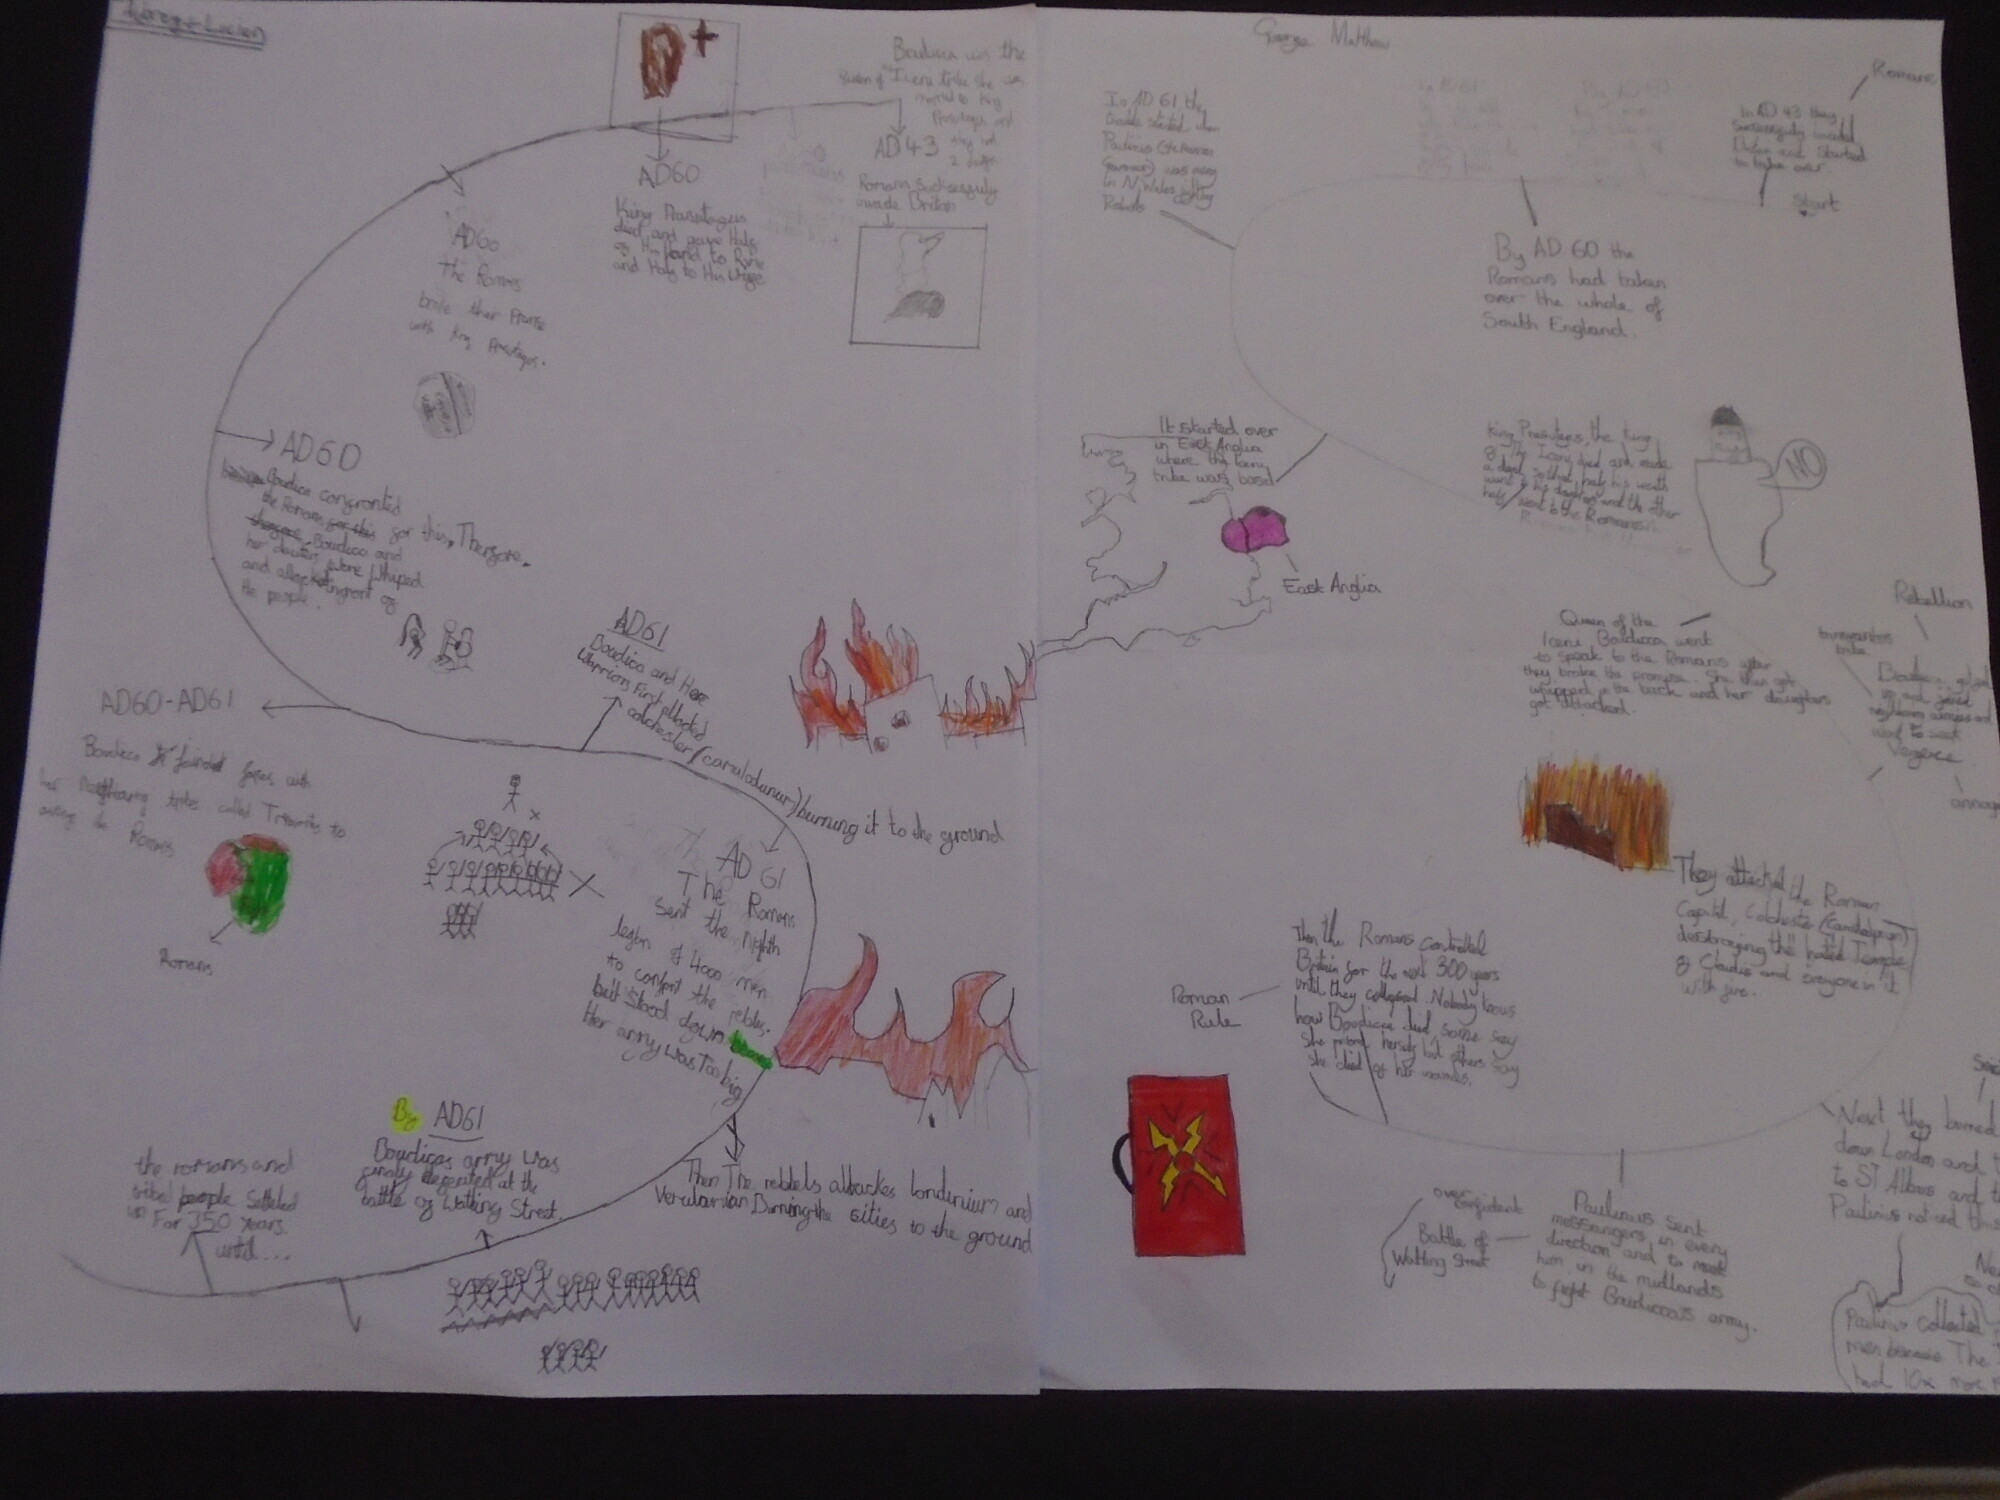 Lucien
Boudica was the
Queen of Iceni tribe she was
married to King
Prasutagus and
they had
AD43
Romans sucsessfuly
invade Britan
AD60
King Prasutagus
died and gave Half
of His land to Rome
and Half to His Wife
AD60
The Romans
broke ther
with King Prasutagus.
AD60
Boudica confronted
the Romans for this for this, Therefore,
therefore Boudica and
her douters were Whiped
and attacked infront of
the people.
AD60-AD61
Boudica joined forces with
her neighbouring tribes called to
avenge the Romans
Romans
AD61
Boudica and Here
Warriors First attacked
colchester (camulodunum) burning it to the ground
AD 61
The Romans
sent the nighth
legion of 4000 men
to confront the rebles.
but stood down
Her army was Too big
Then The rebbels attackes londinium and
Burning the sities to the ground
By AD61
Boudicas army was
finaly defeated at the
battle of Watling Street.
the romans and
tribel people settled
For 350 years
until....
George Matthew
Romans
In AD 43 they
successfully invaded
Britain and started
to take over
Start
By AD 60 the
Romans had taken
over the whole of
South England.
In AD 61 the
trouble started when
Paulinus (the Roman
Governor) was away
in N Wales fighting
Rebels
It started over
in East Anglia
where the Iceny
tribe was based
East Anglia
King Prasutagus, the King
of the Iceni, died and made
a deal so that half his wealth
went to his daughters and the other
half went to the Romans.
NO
Queen of the
Iceni Boudicca went
to speak to the Romans after
they broke the promise. She then got
whipped in the back and her daughters
got attacked.
Rebellion
tribe
Boudicca
up and joined
neighbouring
went to seek
They attacked the Roman
Capital, Colchester
destroying the hated Temple
of Claudius and everyone in it
with fire.
Next they burned
down London and
to ST Albans and
Paulinus noticed this
Paulinus collected
men because The
had 10x more
Paulinus sent
messangers in every
direction and to meet
him in the midlands
to fight Boudiccas army.
over
confident
Battle of
Watling Street
Then the Romans controlled
Britain for the next 300 years
until they collapsed. Nobody knows
how Boudicca died, some say
She herself but others say
she died of her wounds.
Roman
Rule